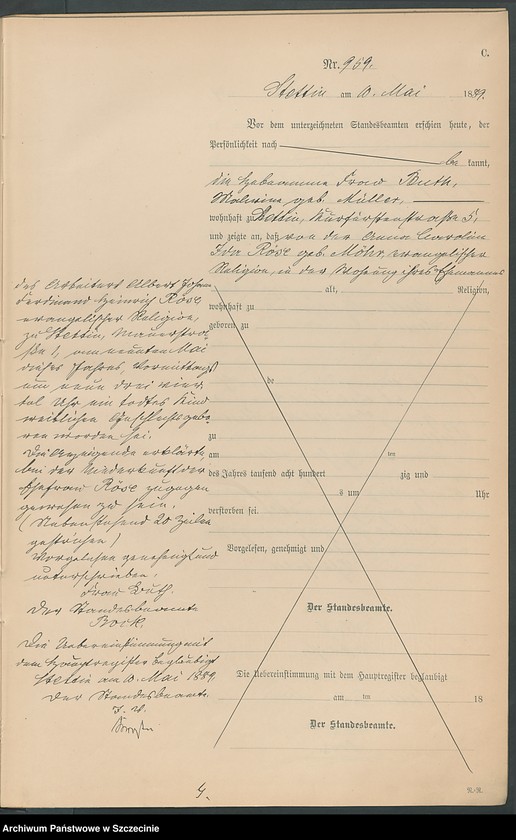 C.
Nr. 959.
Stettin am 10. Mai 1889.
Vor dem unterzeichneten Standesbeamten erschien heute, der
Persönlichkeit nach
be kannt,
die Hebeamme Frau Buth,
Malwine geb. Müller,
wohnhaft zu Stettin, Kurfürstenstraße 5,
und zeigte an, daß von der Anna Carolin
Ida Röse geb. Möhr, evangelischer
Religion, in der Wohnung ihres Ehemannes
des Arbeiters Albert Johann
Ferdinand Heinrich Röse,
evangelischer Religion,
zu Stettin, Mauerstra-
ße, am neunten Mai
dieses Jahres, Vormittags
um neun drei vier-
tel Uhr ein todtes Kind
weiblichen Geschlechts gebo-
ren worden sei.
Die Anzeigende erklärte,
bei der Niederkunft der
Ehefrau Röse zugegen
gewesen zu sein.
(Nebenstehend 20 Zeilen
gestrichen)
Vorgelesen, genehmigt und
unterschrieben.
Frau Buth.
Der Standesbeamte
Bock.
Die Uebereinstimmung mit
dem Hauptregister beglaubigt
Stettin am 10. Mai 1889.
Der Standesbeamte.
I. V.
alt, Religion,
wohnhaft zu
geboren zu
be
zu
am ten
des Jahres tausend acht hundert zig und
s um Uhr
verstorben sei.
Vorgelesen, genehmigt und
Der Standesbeamte.
Die Uebereinstimmung mit dem Hauptregister beglaubigt
am ten 18
Der Standesbeamte.
4.
Archiwum Państwowe w Szczecinie